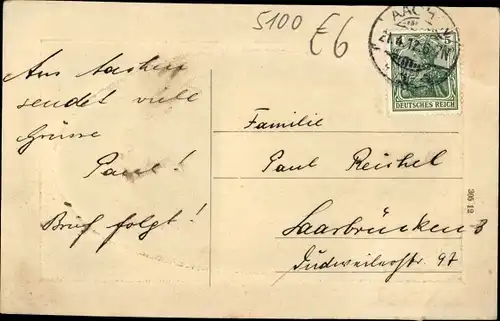 5100
E6
AACHEN
21.4.12.6-7N
DEUTSCHES REICH
Aus Aachen
sendet viele
Grüsse
Paul!
Brief folgt!
Familie
Paul Reichel
Saarbrücken 3
Dudweilerstr. 97
306 12